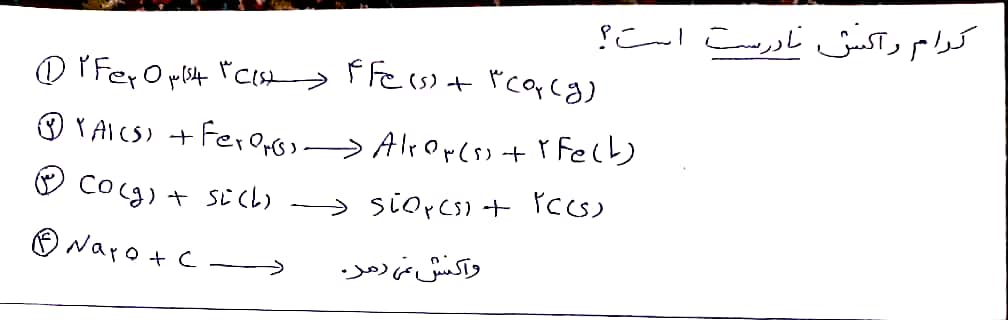 کدام واکنش نادرست است؟
① ۲Fe۲O۳(s) + ۳C(s) → ۴Fe(s) + ۳CO۲(g)
② ۲Al(s) + Fe۲O۳(s) → Al۲O۳(s) + ۲Fe(l)
③ CO(g) + Si(l) → SiO۲(s) + ۲C(s)
④ Na۲O + C → واکنش نمی دهد.